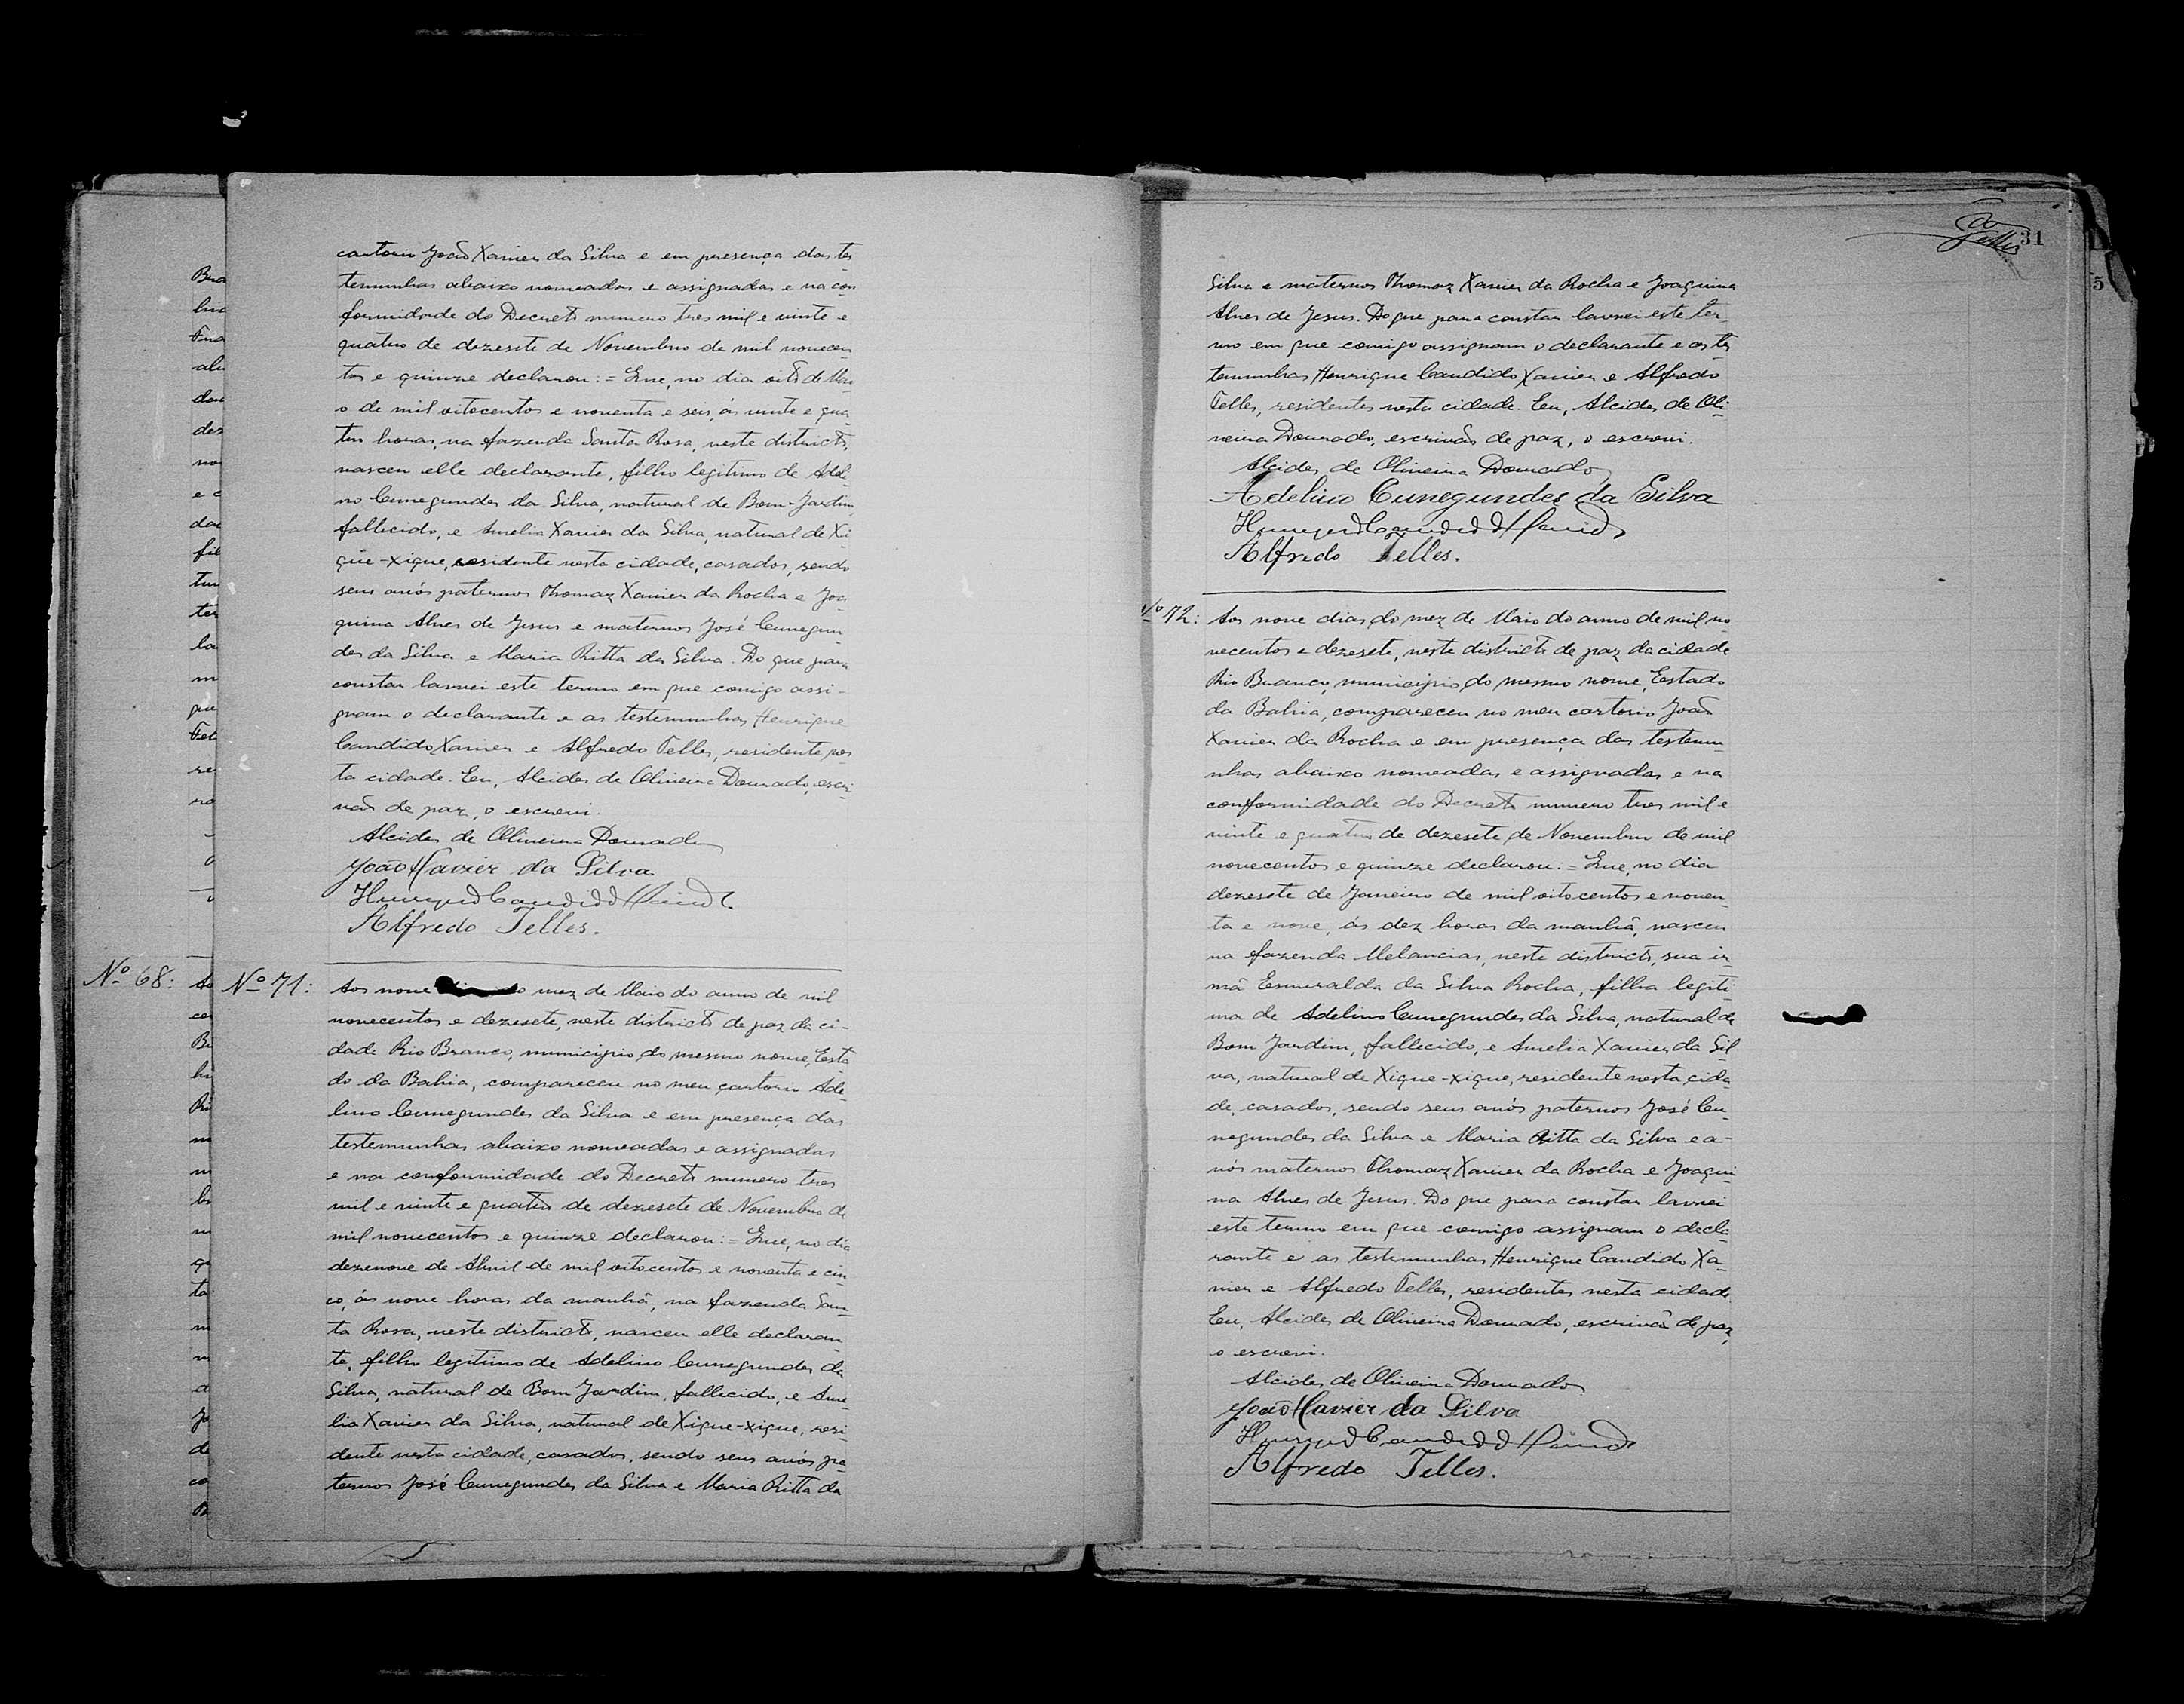 cartorio João Xavier da Silva e em presença das tes
temunhas abaixo nomeadas e assignadas e na con
formidade do Decreto numero tres mil e vinte e
quatro de dezesete de Novembro de mil novecen
tos e quinze declarou:= Que, no dia oito de Mai
o de mil oitocentos e noventa e seis, ás vinte e qua
tro horas, na fazenda Santa Rosa, neste districto,
nasceu elle declarante, filho legitimo de Adeli
no Cunegundes da Silva, natural de Bom-Jardim,
fallecido, e Amelia Xavier da Silva, natural de Xi
que-xique, residente nesta cidade, casados, sendo
seus avós paternos Thomaz Xavier da Rocha e Joa
quina Alves de Jesus e maternos José Cunegun
des da Silva e Maria Ritta da Silva. Do que para
constar lavrei este termo em que comigo assi-
gnam o declarante e as testemunhas Henrique
Candido Xavier e Alfredo Telles, residente nes
ta cidade. Eu, Alcides de Oliveira Dourado, escri-
vão de paz, o escrevi.
Alcides de Oliveira Dourado
João Xavier da Silva
Henrique Candido Xavier
Alfredo Telles.
Nº 68:
Nº 71:
Aos nove mez de Maio do anno de mil
novecentos e dezesete, neste districto de paz da ci-
dade Rio Branco, municipio do mesmo nome, Esta
do da Bahia, compareceu no meu cartorio Ade
lino Cunegundes da Silva e em presença das
testemunhas abaixo nomeadas e assignadas
e na conformidade do Decreto numero tres
mil e vinte e quatro de dezesete de Novembro de
mil novecentos e quinze declarou:= Que, no dia
dezenove de Abril de mil oitocentos e noventa e cin
co, ás nove horas da manhã, na fazenda San
ta Rosa, neste districto, nasceu elle declaran
te, filho legitimo de Adelino Cunegundes da
Silva, natural de Bom Jardim, fallecido, e Ame
lia Xavier da Silva, natural de Xique-xique, resi-
dente nesta cidade, casados, sendo seus avós pa
ternos José Cunegundes da Silva e Maria Ritta da
Telles 31
Silva e maternos Thomaz Xavier da Rocha e Joaquina
Alves de Jesus. Do que para constar lavrei este ter-
mo em que comigo assignam o declarante e as tes
temunhas Henrique Candido Xavier e Alfredo
Telles, residentes nesta cidade. Eu, Alcides de Oli-
veira Dourado, escrivão de paz, o escrevi.
Alcides de Oliveira Dourado
Adelino Cunegundes da Silva
Henrique Candido Xavier
Alfredo Telles.
Nº 72:
Aos nove dias do mez de Maio do anno de mil no
vecentos e dezesete, neste districto de paz da cidade
Rio Branco, municipio do mesmo nome, Estado
da Bahia, compareceu no meu cartorio João
Xavier da Rocha e em presença das testemu
nhas abaixo nomeadas e assignadas e na
conformidade do Decreto numero tres mil e
vinte e quatro de dezesete de Novembro de mil
novecentos e quinze declarou:= Que, no dia
dezesete de Janeiro de mil oitocentos e noven-
ta e nove, ás dez horas da manhã, nasceu
na fazenda Melancias, neste districto, sua ir-
mã Esmeralda da Silva Rocha, filha legiti-
ma de Adelino Cunegundes da Silva, natural de
Bom Jardim, fallecido, e Amelia Xavier da Sil
va, natural de Xique-xique, residente nesta cida-
de, casados, sendo seus avós paternos José Cu-
negundes da Silva e Maria Ritta da Silva e a-
vós maternos Thomaz Xavier da Rocha e Joaqui-
na Alves de Jesus. Do que para constar lavrei
este termo em que comigo assignam o decla-
rante e as testemunhas Henrique Candido Xa-
vier e Alfredo Telles, residentes nesta cidade.
Eu, Alcides de Oliveira Dourado, escrivão de paz,
o escrevi.
Alcides de Oliveira Dourado
João Xavier da Silva
Henrique Candido Xavier
Alfredo Telles.